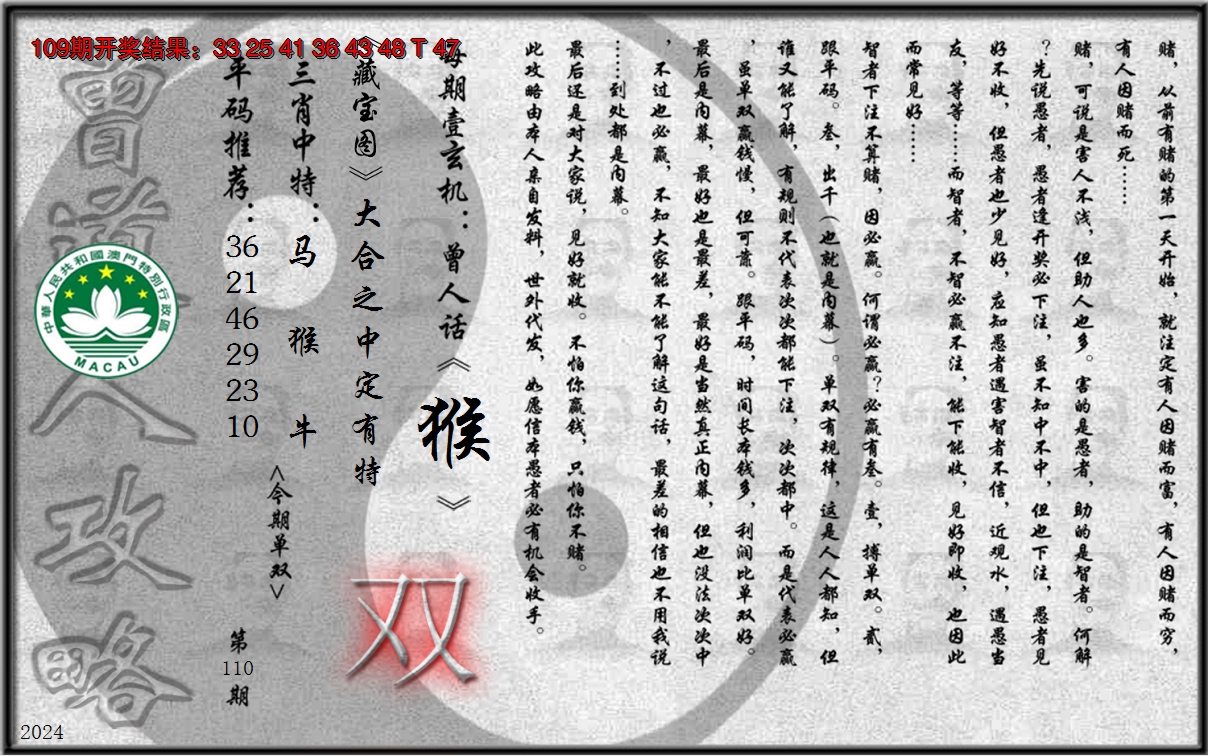 109期开奖结果：33 25 41 36 43 48 T 47
赌，从前有赌的第一天开始，就注定有人因赌而富，有人因赌而穷，
有人因赌而死……
赌，可说是害人不浅，但助人也多。害的是愚者，助的是智者。何解
？先说愚者，愚者逢开奖必下注，虽不知中不中，但也下注，愚者见
好不收，但愚者也少见好，应知愚者遇害智者不信，近观水，遇愚当
友，等等……而智者，不智必赢不注，能下能收，见好即收，也因此
而常见好……
智者下注不算赌，因必赢。何谓必赢？必赢有叁。壹，搏单双。贰，
跟平码。叁，出千（也就是内幕）。单双有规律，这是人人都知，但
谁又能了解，有规则不代表次次都能下注，次次都中。而是代表必赢
，虽单双赢钱慢，但可靠。跟平码，时间长本钱多，利润比单双好。
最后是内幕，最好也是最差，最好是当然真正内幕，但也没法次次中
，不过也必赢，不知大家能不能了解这句话，最差的相信也不用我说
……到处都是内幕。
最后还是对大家说，见好就收。不怕你赢钱，只怕你不赌。
此攻略由本人亲自发料，世外代发，如愿信本愚者必有机会收手。
每期壹玄机：曾人话《猴》
《藏宝图》大合之中定有特
双
三肖中特：马 猴 牛
<今期单双>
平码推荐：36 21 46 29 23 10
第110期
曾道人攻略
中華人民共和國澳門特別行政區
MACAU
2024